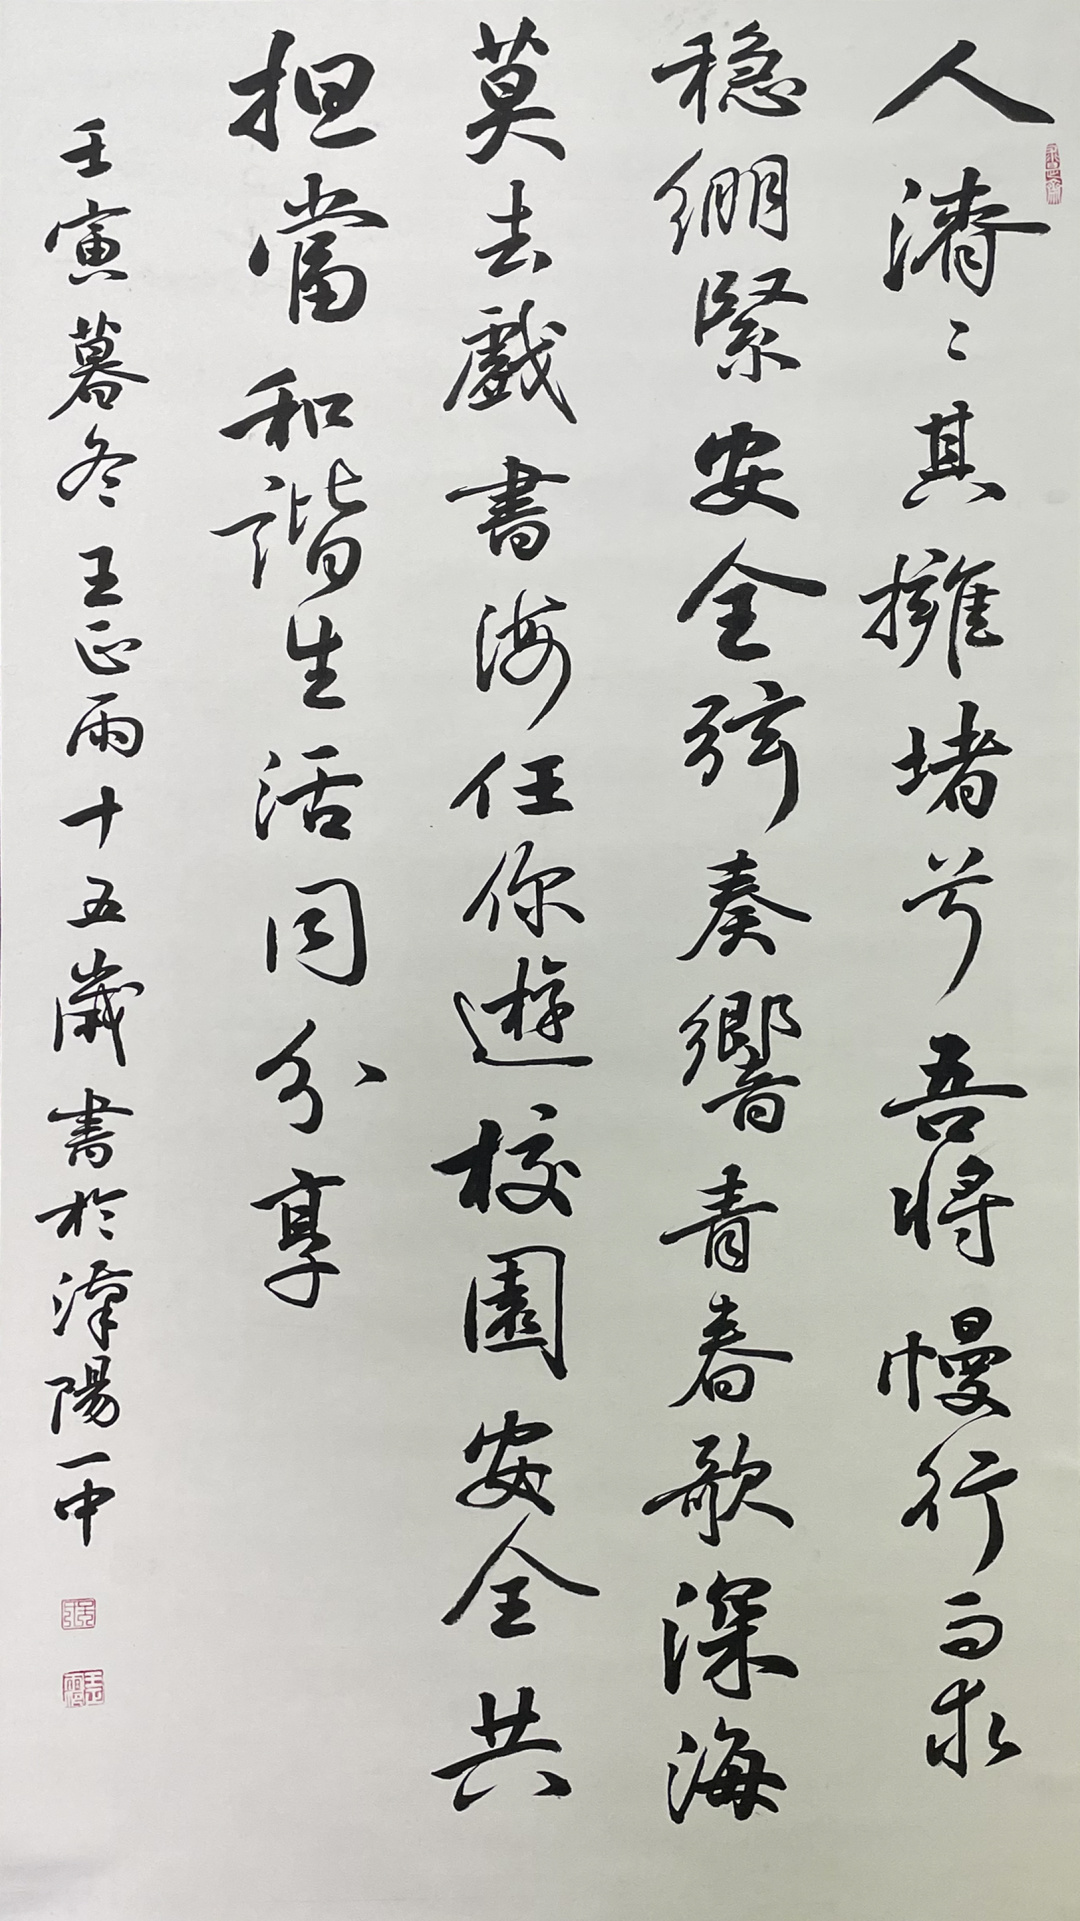 人濟〻其擁堵兮吾將慢行而求
穩绷緊安全弦奏響青春歌深海
莫去戲書海任你遊校園安全共
担當和諧生活同分享
壬寅暮冬王正雨十五歲書於漳陽一中